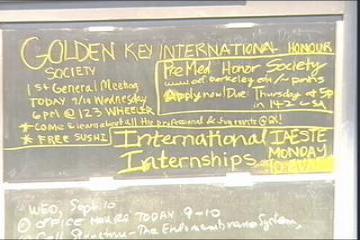 GOLDEN KEY INTERNATIONAL HONOUR
SOCIETY
1st General Meeting
TODAY 9/10 Wednesday
6 pm @ 123 WHEELER
* COME & learn about all the professional & fun events @ GK!
* FREE SUSHI
PreMed Honor Society
Apply now! Due: Thursday at 5p
in 142
International
Internships
IAESTE
MONDAY
WED, Sept. 10
① OFFICE HOURS TODAY 9-10
② Cell Structure - The Endomembrane System,